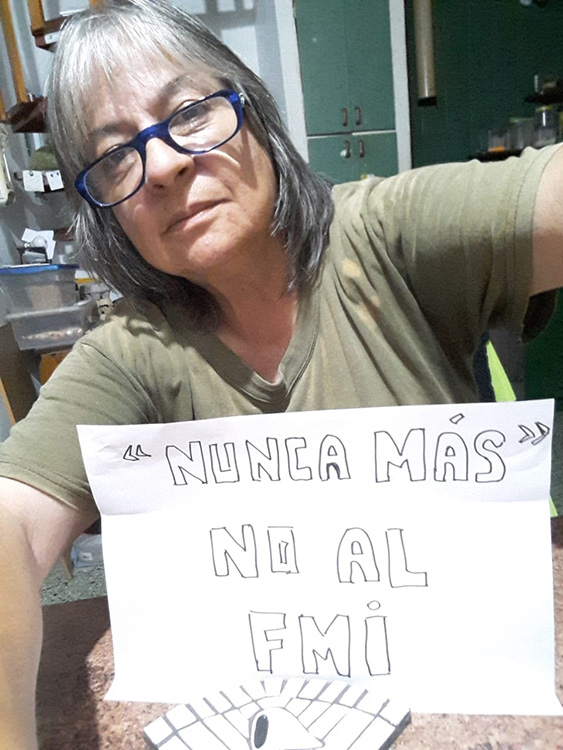 «NUNCA MÁS»
NO AL
FMi